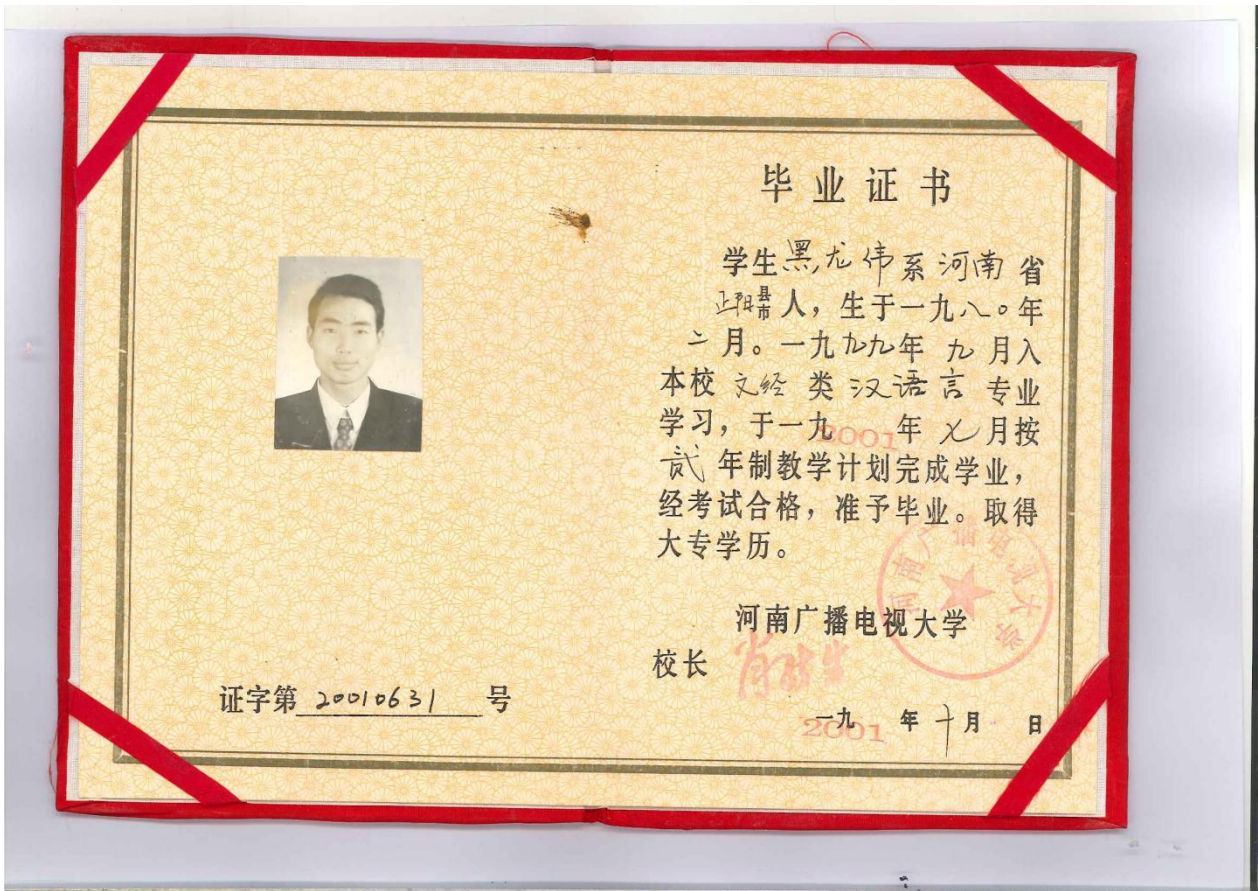 毕业证书
学生黑龙伟系河南省
正阳县市人，生于一九八〇年
二月。一九九九年九月入
本校文经类汉语言专业
学习，于一九2001年七月按
贰年制教学计划完成学业，
经考试合格，准予毕业。取得
大专学历。
河南广播电视大学
河南广播电视大学
校长
证字第 20010631 号
一九2001年十月 日